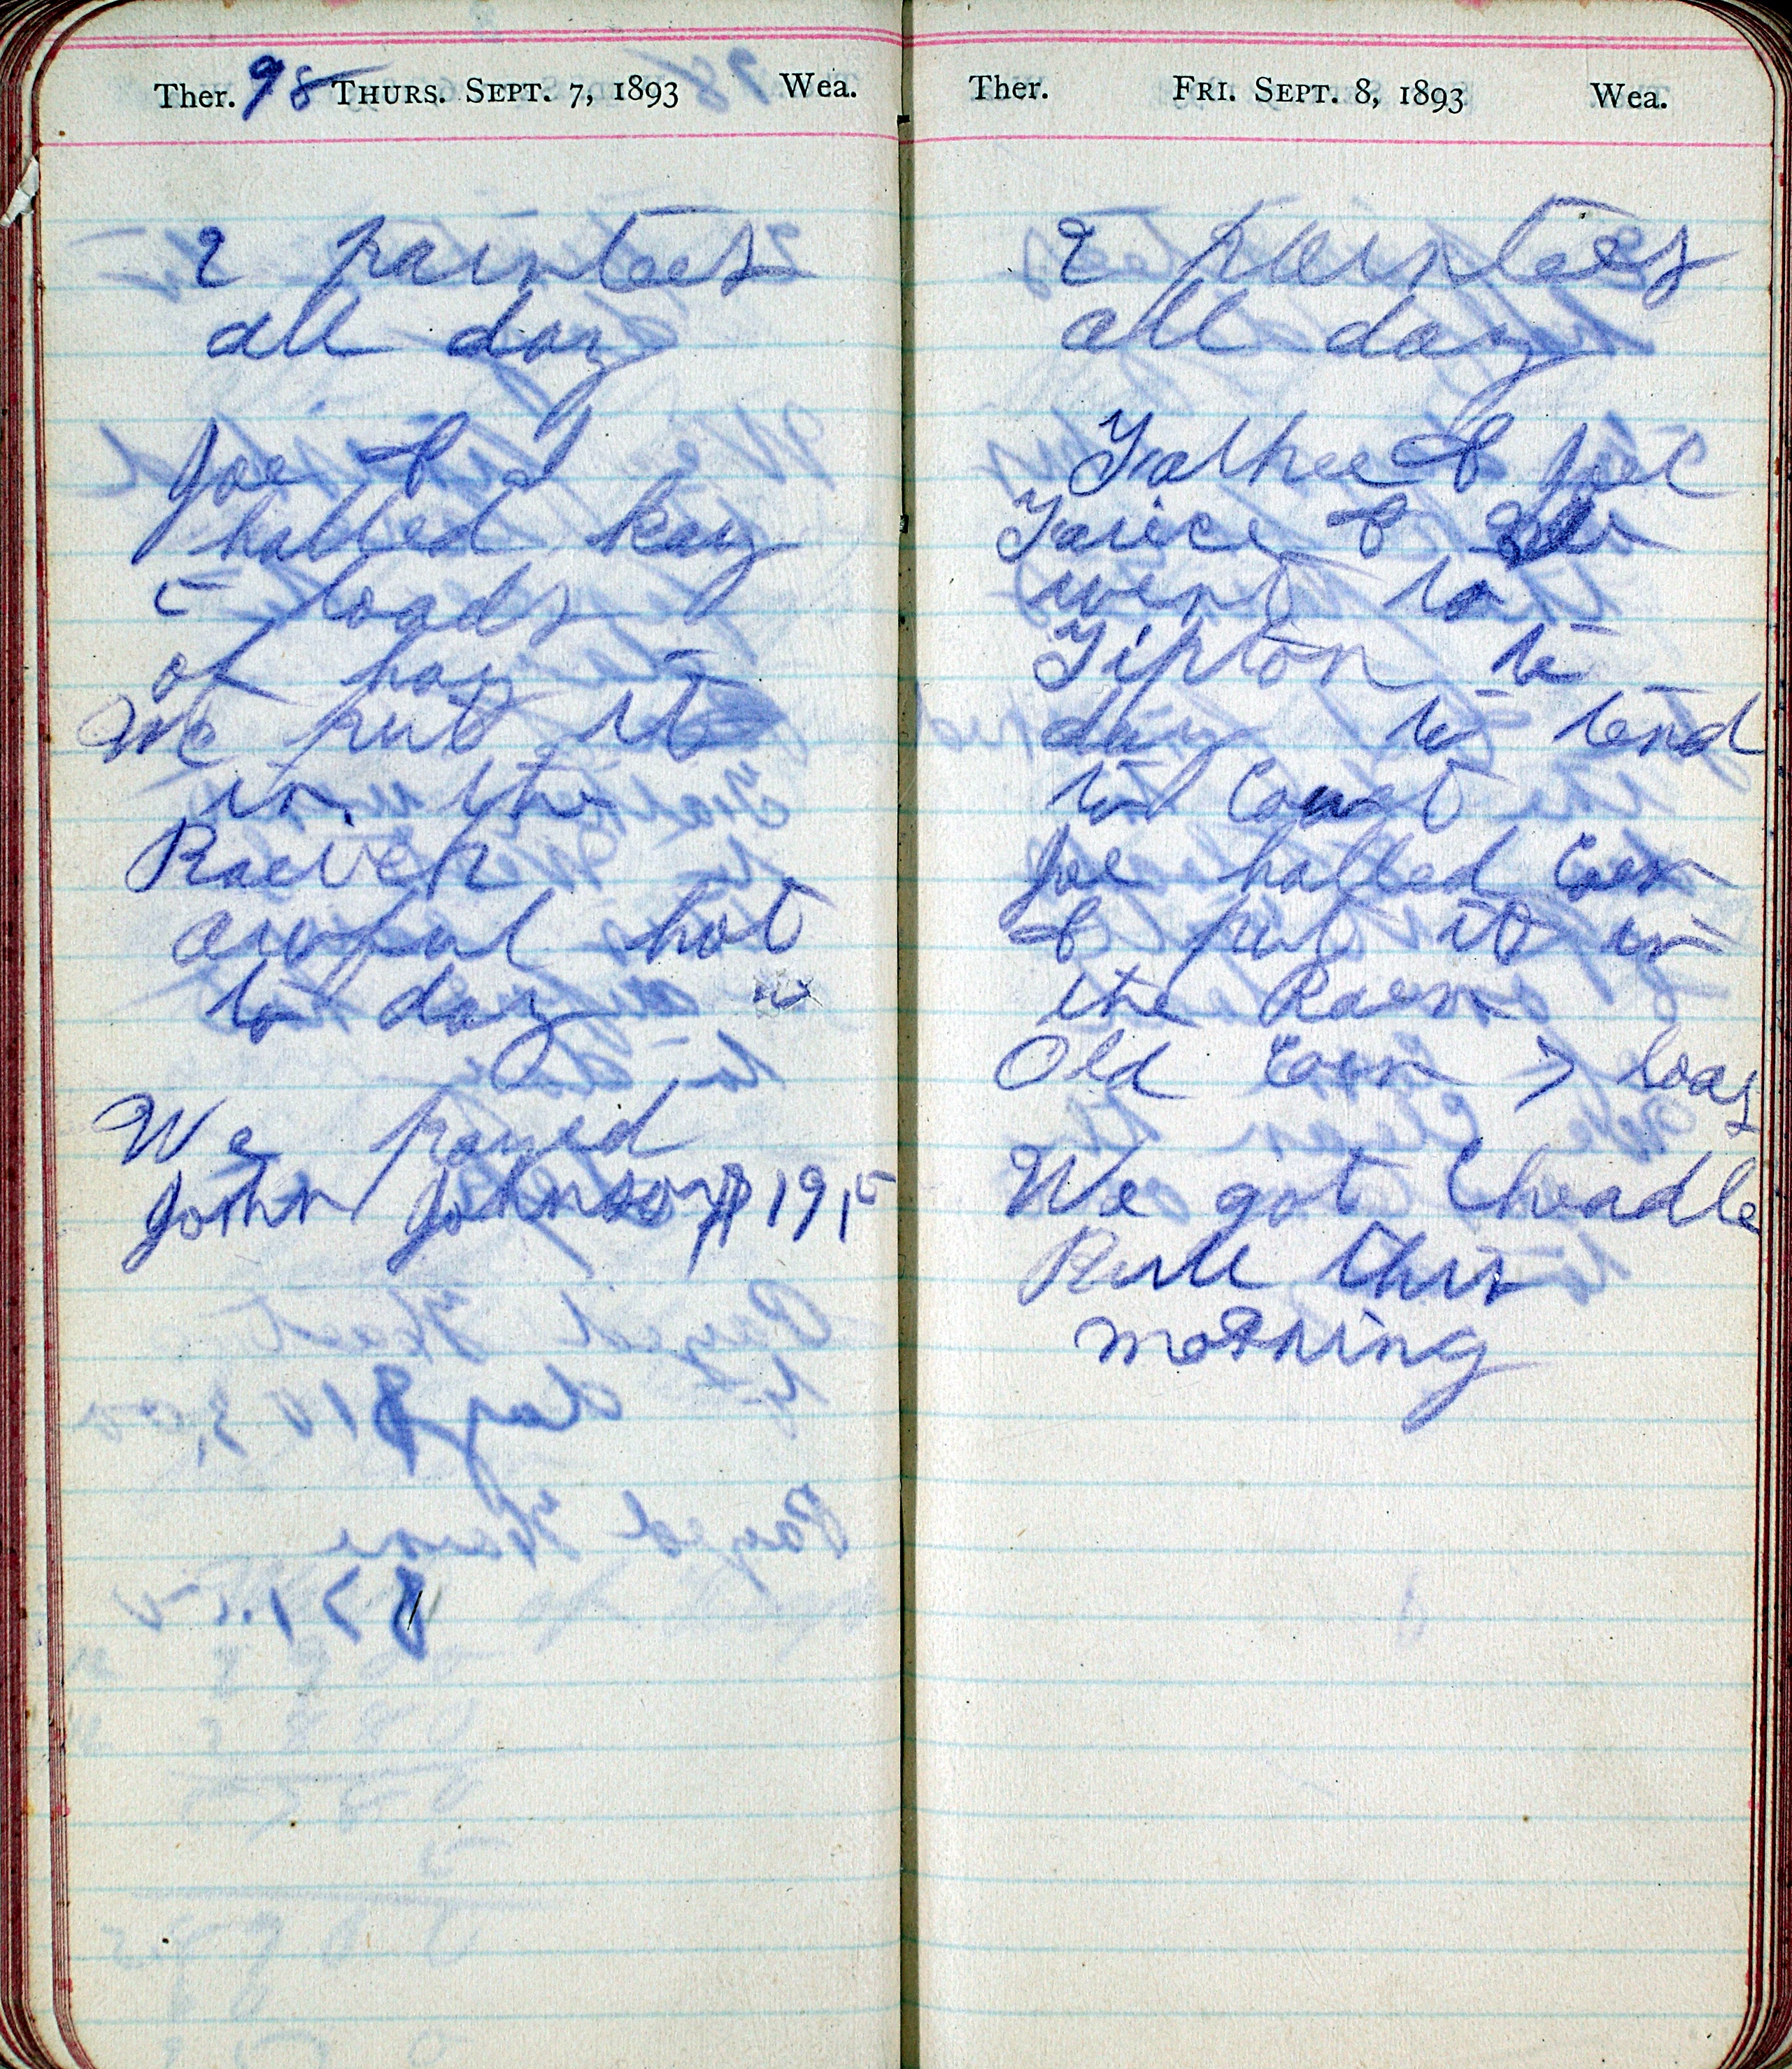 Ther. 98 THURS. SEPT. 7, 1893 Wea.
2 painters
all day
Joe & I
halled hay
5 loads
of hay
We put it
in the
awful hot
to day
We payed
John Johnson $19,5
Ther. FRI. SEPT. 8, 1893 Wea.
2 painters
all day
Father & Joel
&
went to
Tipton to
day to tend
to Court
Joe halled Corn
& put it in
the Barn
Old Corn 7 loads
We got Cheadle
Bull this
morning